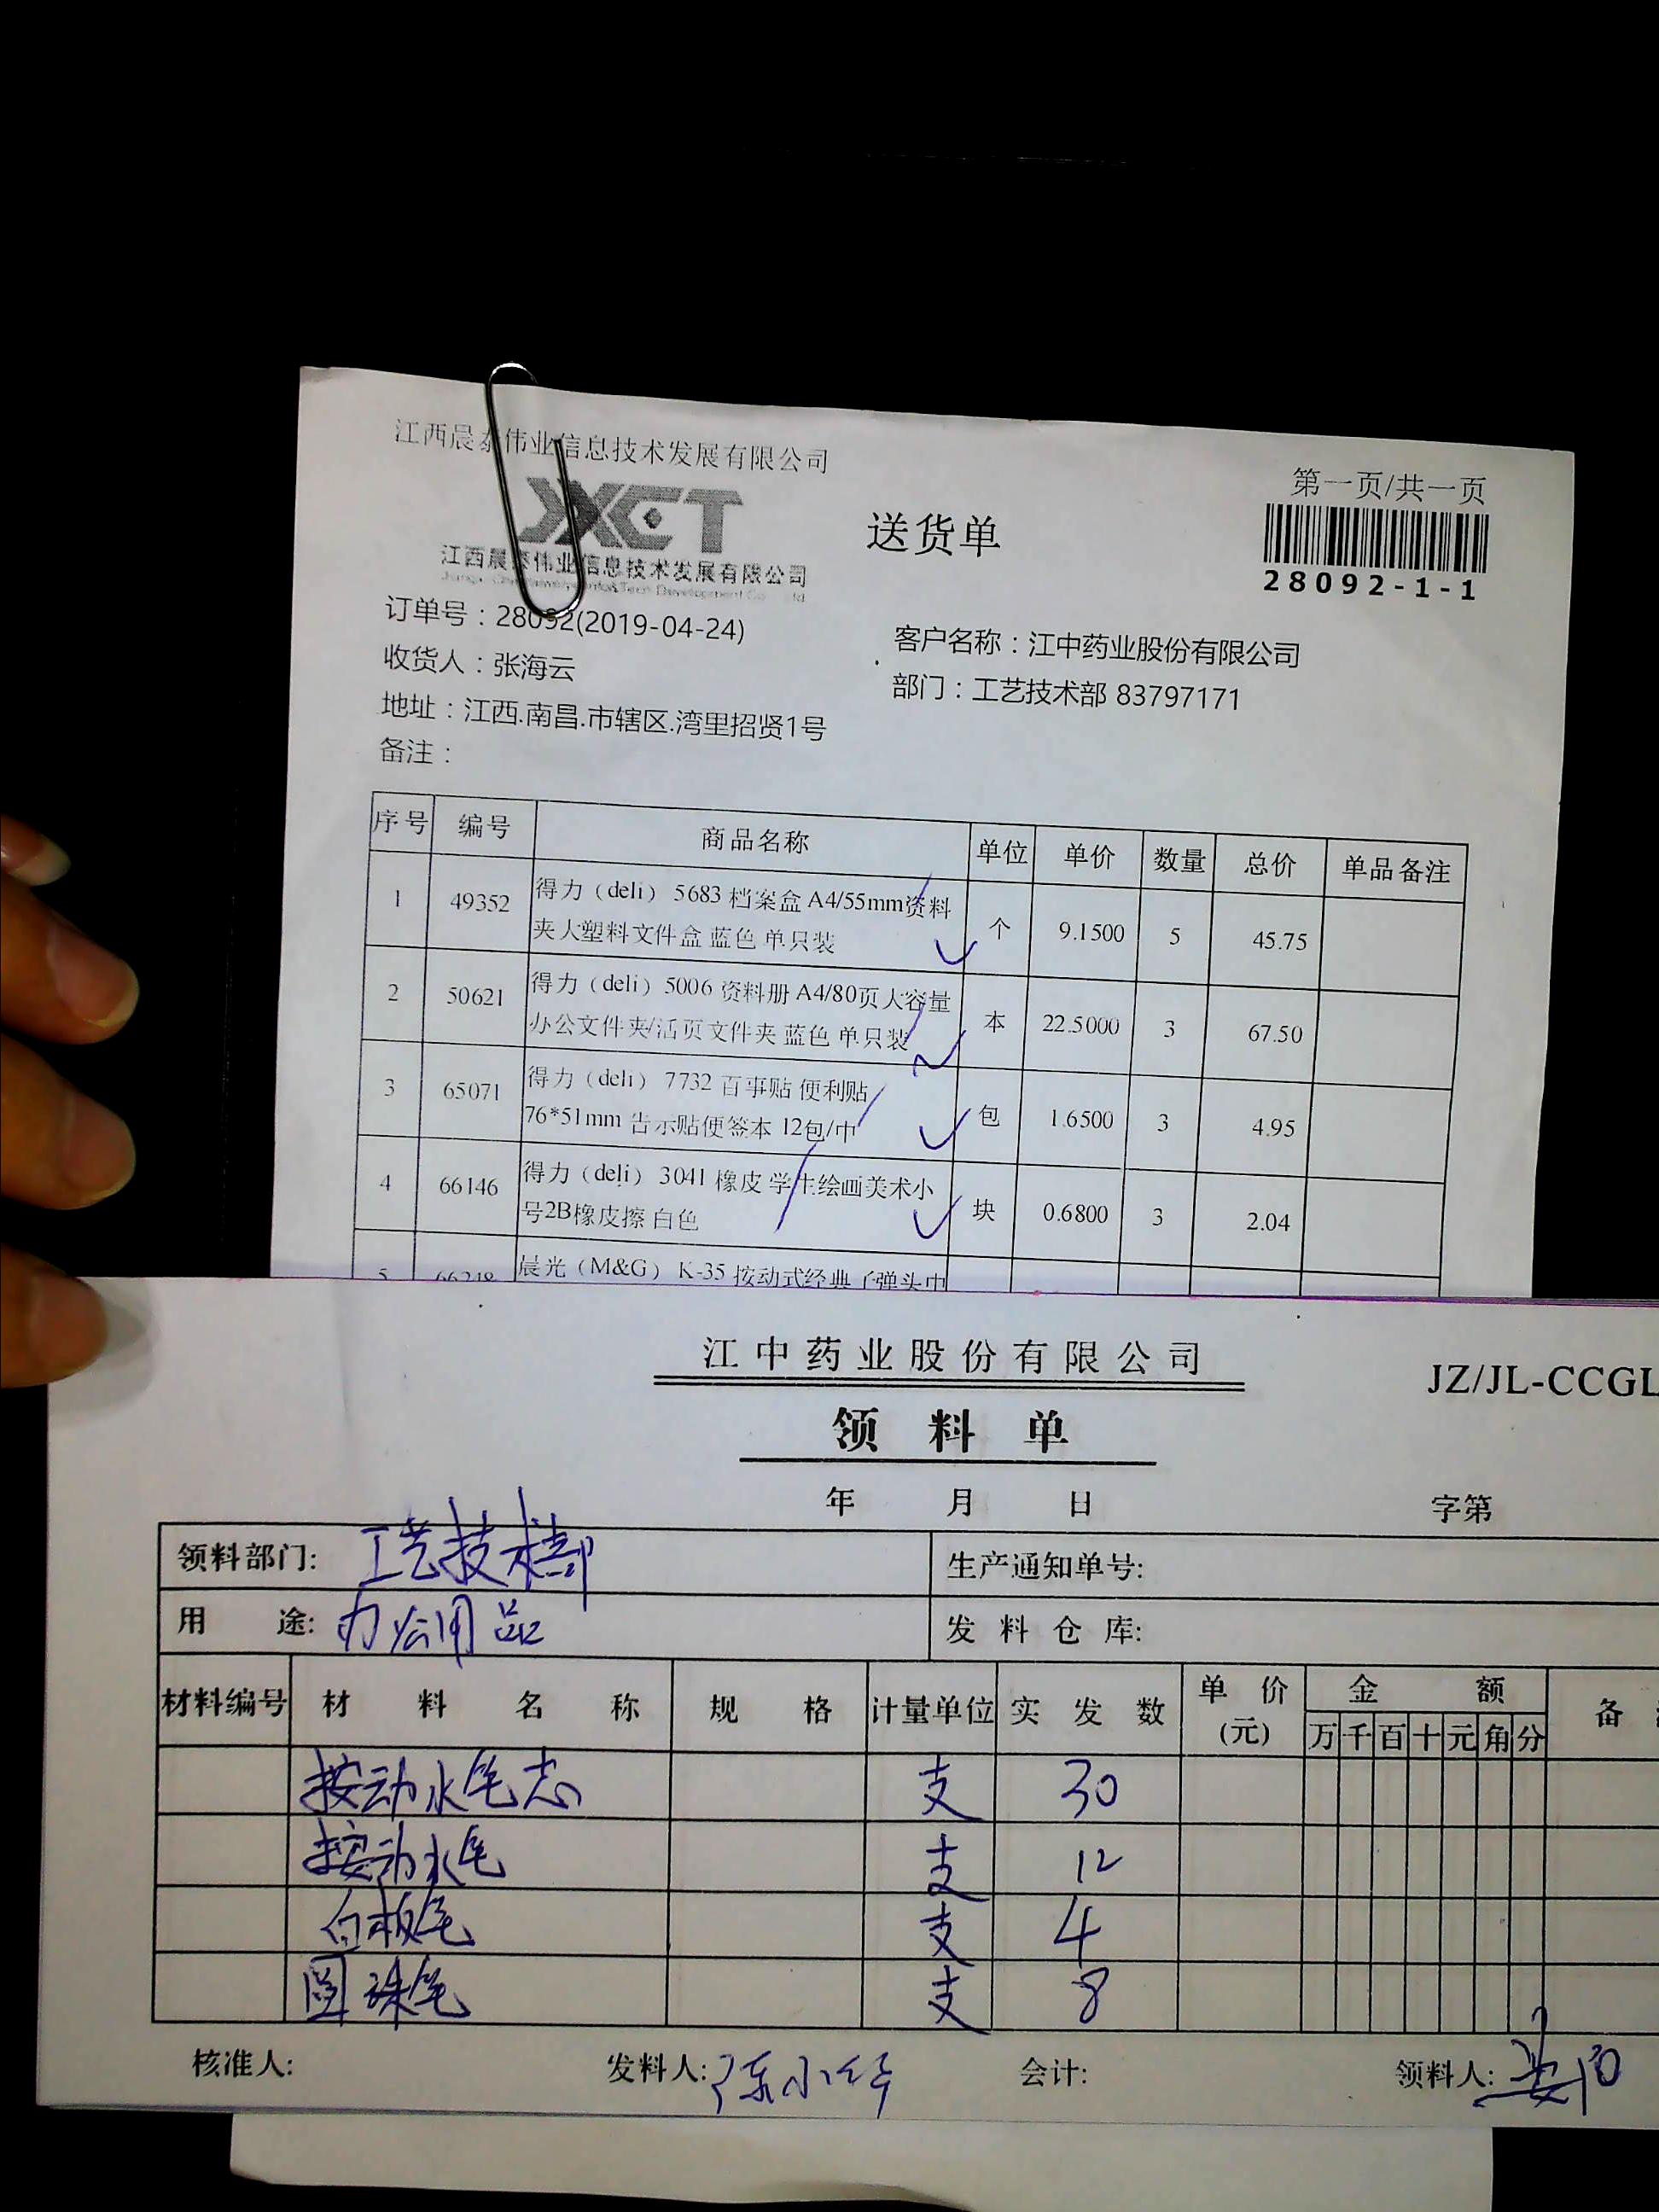 江西晨泰伟业信息技术发展有限公司
第一页/共一页
江西晨泰伟业信息技术发展有限公司
送货单
28092-1-1
订单号：28092(2019-04-24)
客户名称：江中药业股份有限公司
收货人：张海云
部门：工艺技术部 83797171
地址：江西.南昌.市辖区.湾里招贤1号
备注：
序号 编号 商品名称 单位 单价 数量 总价 单品备注
1 49352 得力（deli）5683 档案盒 A4/55mm资料
夹大塑料文件盒 蓝色 单只装 个 9.1500 5 45.75
2 50621 得力（deli）5006 资料册 A4/80页大容量
办公文件夹/活页文件夹 蓝色 单只装 本 22.5000 3 67.50
3 65071 得力（deli）7732 百事贴 便利贴
76*51mm 告示贴便签本 12包/中 包 1.6500 3 4.95
4 66146 得力（deli）3041 橡皮 学生绘画美术小
号2B橡皮擦 白色 块 0.6800 3 2.04
5 66248 晨光（M&G）K-35 按动式经典子弹头中
江中药业股份有限公司
JZ/JL-CCGL
领料单
年 月 日 字第
领料部门: 工艺技术部 生产通知单号:
用途: 办公用品 发料仓库:
材料编号 材料名称 规格 计量单位 实发数 单价(元) 金额 备
万 千 百 十 元 角 分
按动水笔芯 支 30
按动水笔 支 12
白板笔 支 4
圆珠笔 支 8
核准人: 发料人: 陈小华 会计: 领料人: